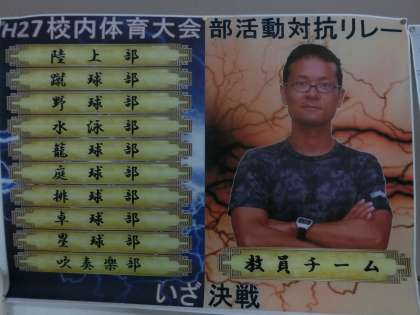 H27校内体育大会 部活動対抗リレー
陸上部
蹴球部
野球部
水泳部
籠球部
庭球部
排球部
卓球部
塁球部
吹奏楽部
教員チーム
いざ 決戦